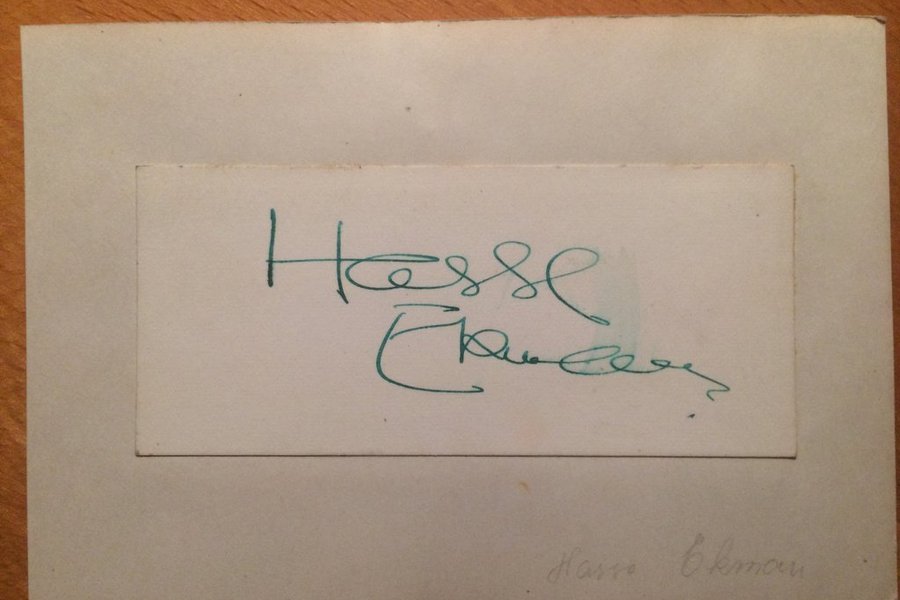 Hasse
Ekman
Hasse Ekman